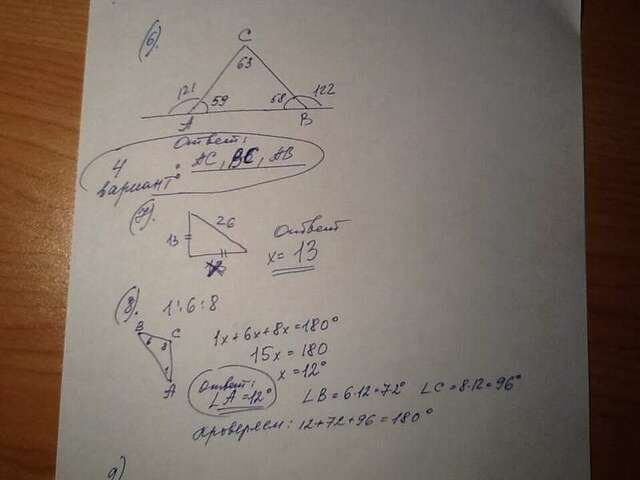 (6).
C
63
121 59 58 122
A B
Ответ:
4 вариант: AC, BC, AB
(7).
26
13
Ответ
x = 13
(8). 1:6:8
B C
6 8
1x+6x+8x=180°
15x = 180
x = 12°
A
Ответ:
∠A = 12°
∠B = 6·12=72° ∠C = 8·12=96°
проверяем: 12+72+96 = 180°
9)